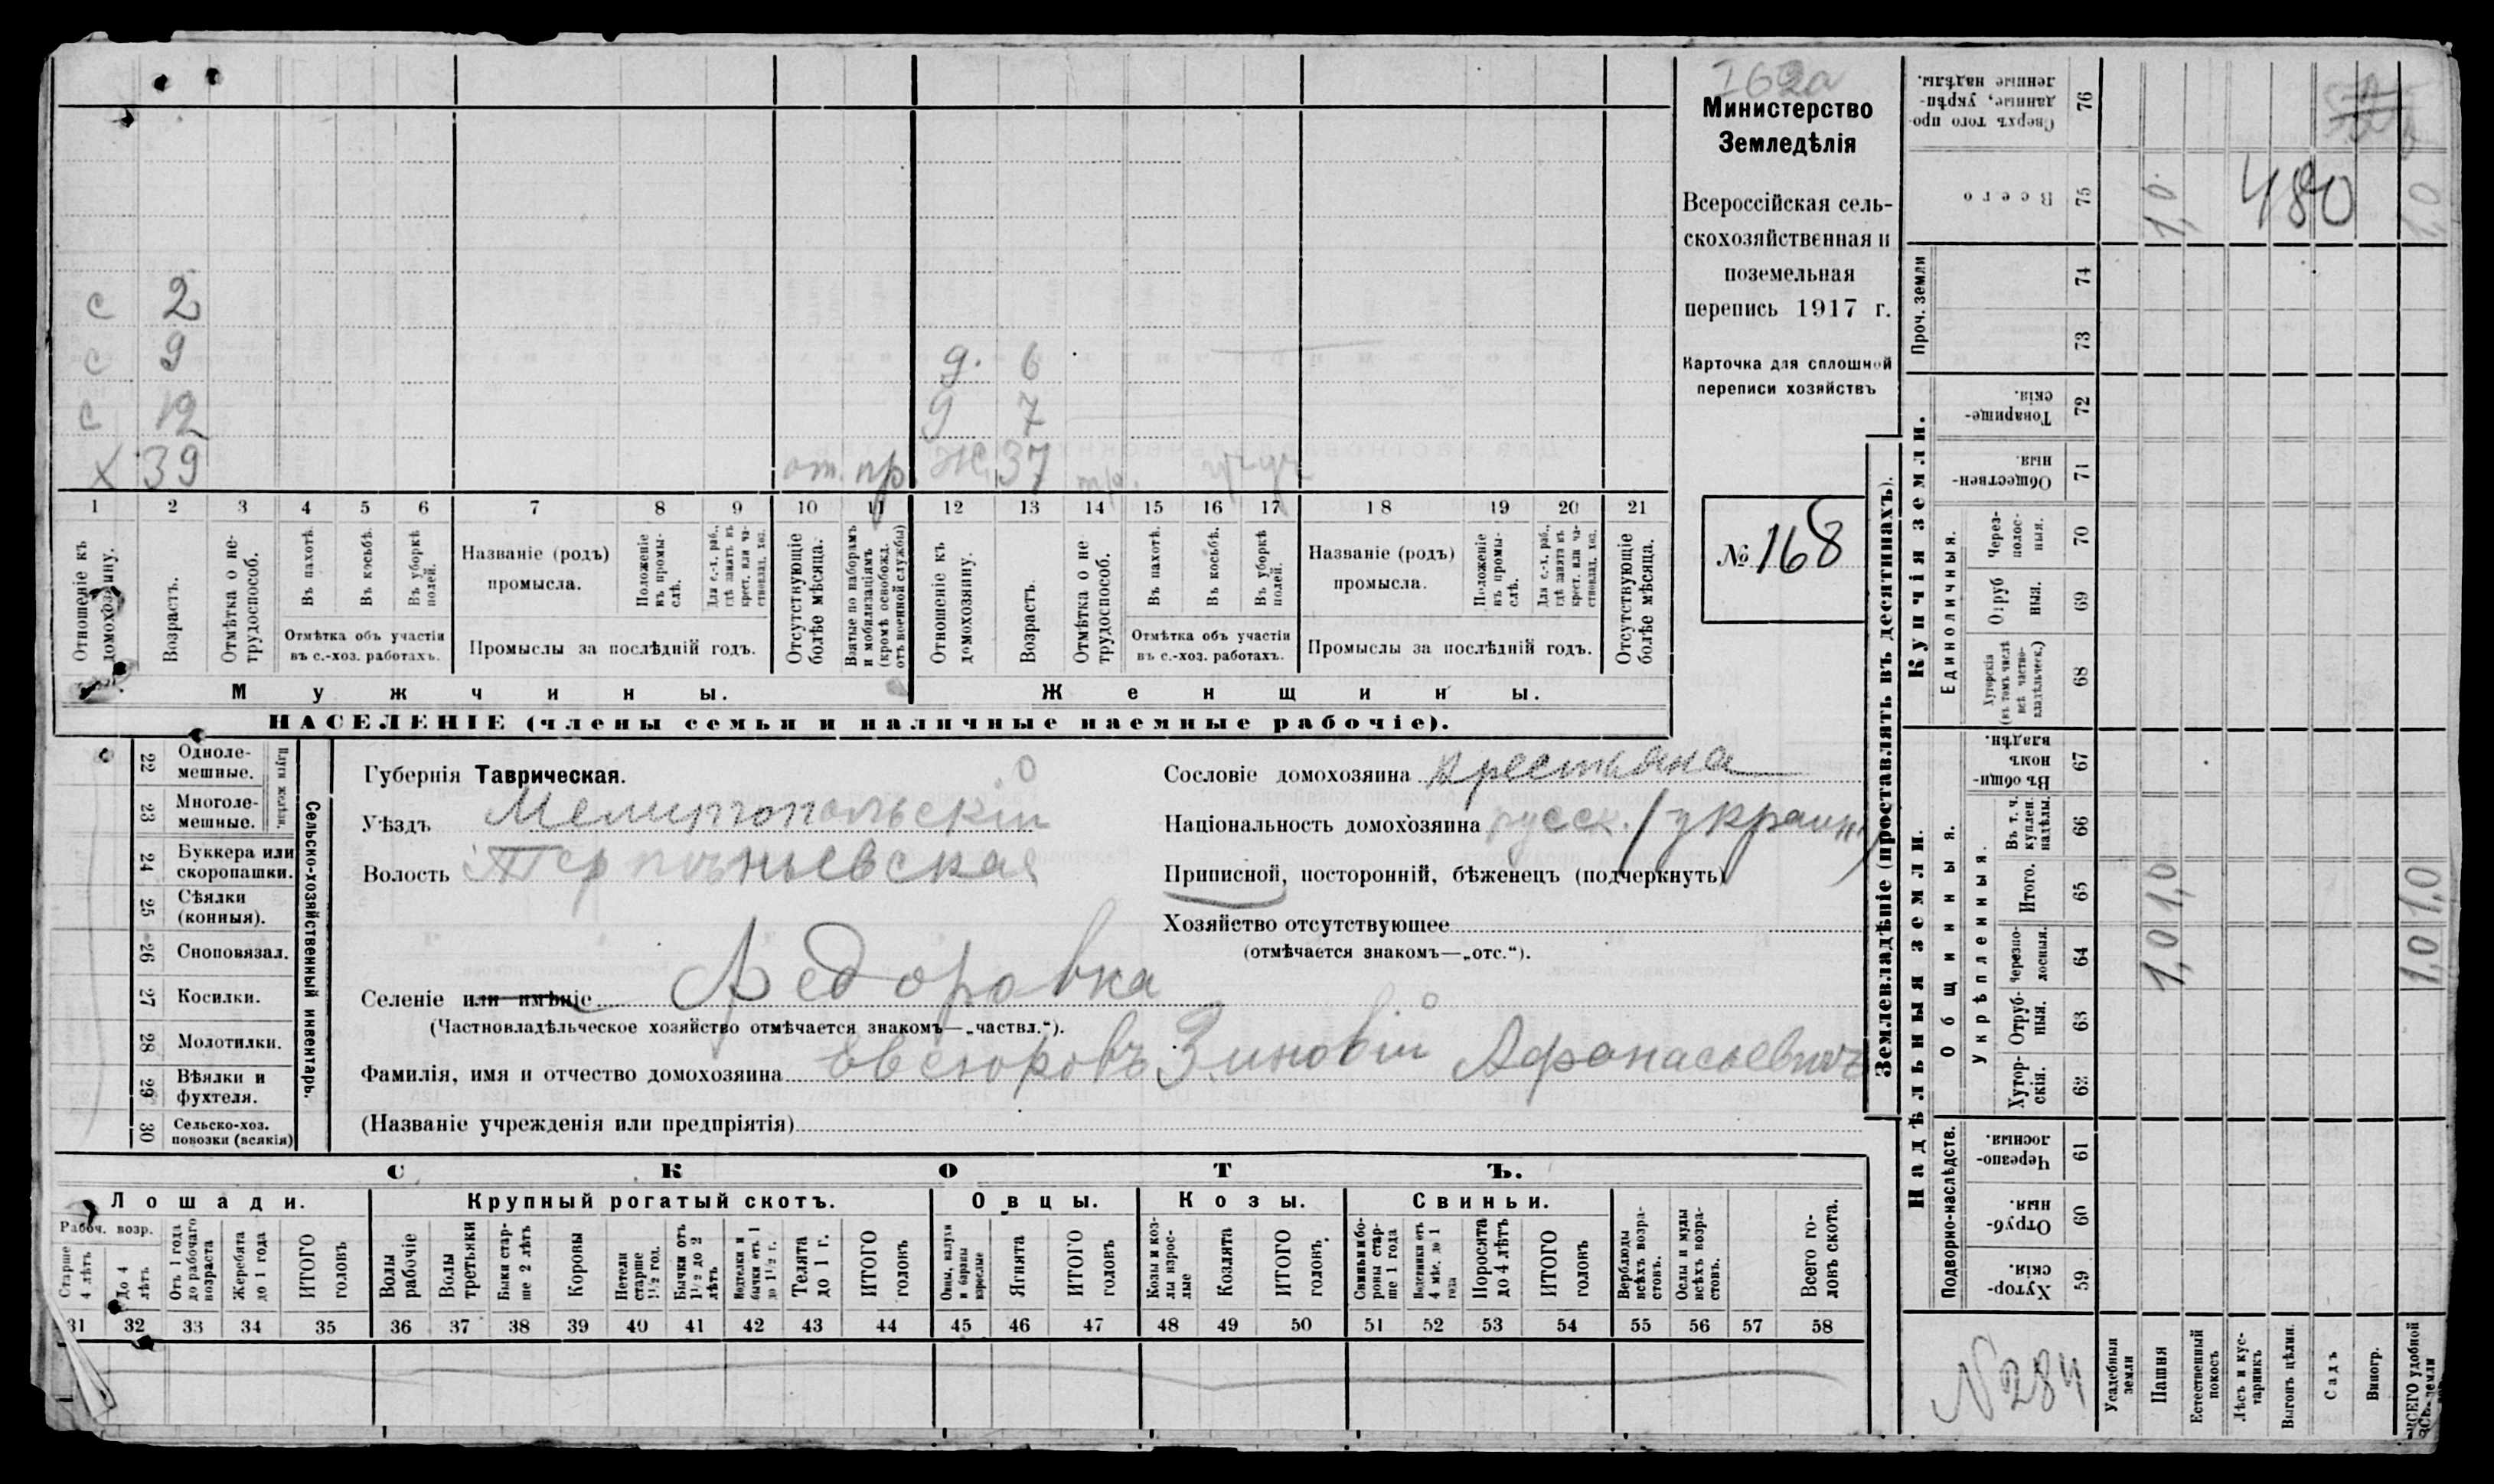 I62а
Министерство
Земледѣлія
Всероссійская сель-
скохозяйственная и
поземельная
перепись 1917 г.
Карточка для сплошной
переписи хозяйствъ
№ 168
с 2
с 9 д. 6
с 12 д 7
х 39 от. пр. ж. 37
1 2 3 4 5 6 7 8 9 10 11 12 13 14 15 16 17 18 19 20 21
Отношеніе къ домохозяину.
Возрастъ.
Отмѣтка о не-трудоспособ.
Въ пахотѣ.
Въ косьбѣ.
Въ уборкѣ полей.
Отмѣтка объ участіи
въ с.-хоз. работахъ.
Названіе (родъ)
промысла.
Положеніе въ промы-слѣ.
Для с.-х. раб., гдѣ занятъ въ крест. или ча-стновлад. хоз.
Промыслы за послѣдній годъ.
Отсутствующіе болѣе мѣсяца.
Взятые по наборамъ и мобилизаціямъ (кромѣ освобожд. отъ военной службы)
Отношеніе къ домохозяину.
Возрастъ.
Отмѣтка о не трудоспособ.
Въ пахотѣ.
Въ косьбѣ.
Въ уборкѣ полей.
Отмѣтка объ участіи
въ с.-хоз. работахъ.
Названіе (родъ)
промысла.
Положеніе въ промы-слѣ.
Для с.-х. раб., гдѣ занята въ крест. или ча-стновлад. хоз.
Промыслы за послѣдній годъ.
Отсутствующіе болѣе мѣсяца.
Мужчины.
Женщины.
НАСЕЛЕНІЕ (члены семьи и наличные наемные рабочіе).
Сельско-хозяйственный инвентарь.
Плуги желѣзн.
22 Одноле-мешные.
23 Многоле-мешные.
24 Буккера или скоропашки.
25 Сѣялки (конныя).
26 Сноповязал.
27 Косилки.
28 Молотилки.
29 Вѣялки и фухтеля.
30 Сельско-хоз. повозки (всякія)
Губернія Таврическая.
Уѣздъ Мелитопольскій
Волость
Селеніе или имѣніе Федоровка
(Частновладѣльческое хозяйство отмѣчается знакомъ—„частвл.“).
Фамилія, имя и отчество домохозяина Евсюковъ Зиновій Афанасьевичъ
(Названіе учрежденія или предпріятія)
Сословіе домохозяина крестьяна
Національность домохозяина русск. / украин.
Приписной, посторонній, бѣженецъ (подчеркнуть)
Хозяйство отсутствующее
(отмѣчается знакомъ—„отс.“).
СКОТЪ.
Лошади.
Крупный рогатый скотъ.
Овцы.
Козы.
Свиньи.
Рабоч. возр.
Старше 4 лѣтъ
До 4 лѣтъ
Отъ 1 года до рабочаго возраста
Жеребята до 1 года
ИТОГО головъ
Волы рабочіе
Волы третьяки
Быки стар-ше 2 лѣтъ
Коровы
Нетели старше 1½ год.
Бычки отъ 1½ до 2 лѣтъ
Нодтелки и бычки отъ 1 до 1½ г.
Телята до 1 г.
ИТОГО головъ
Овцы, валухи и бараны взрослые
Ягнята
ИТОГО головъ
Козы и коз-лы взрос-лые
Козлята
ИТОГО головъ.
Свиньи и бо-ровы стар-ше 1 года
Подсвинки отъ 4 мѣс. до 1 года
Поросята до 4 лѣтъ
ИТОГО головъ
Верблюды всѣхъ возра-стовъ.
Ослы и мулы всѣхъ возра-стовъ.
Всего го-ловъ скота.
31 32 33 34 35 36 37 38 39 40 41 42 43 44 45 46 47 48 49 50 51 52 53 54 55 56 57 58
Землевладѣніе (проставлять въ десятинахъ).
Купчія земли.
Надѣльныя земли.
Проч. земли
Единоличныя.
Общинныя.
Укрѣпленныя.
Подворно-наслѣдств.
76 Сверхъ того про-данные, укрѣп-ленные надѣлы.
75 Всего 1,0. 480 1,0
74
73
72 Товарище-скія.
71 Обществен-ныя.
70 Через-полос-ныя.
69 Отруб ныя.
68 Хуторскія (въ томъ числѣ всѣ частно-владѣльческ.)
67 Въ общин-номъ владѣн.
66 Въ т. ч. куплен. надѣлы.
65 Итого. 1,0 1,0
64 Черезпо-лосныя. 1,0 1,0
63 Отруб-ныя.
62 Хутор-скія.
61 Черезпо-лосныя.
60 Отруб-ныя.
59 Хутор-скія.
N 284
Усадебныя земли
Пашня
Естественный покосъ
Лѣсъ и кус-тарникъ
Выгонъ цѣлин.
Садъ
Виногр.
ВСЕГО удобной земли